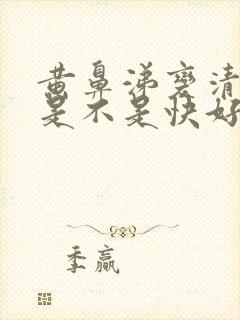 黄鼻涕变清
是不是快好
季赢